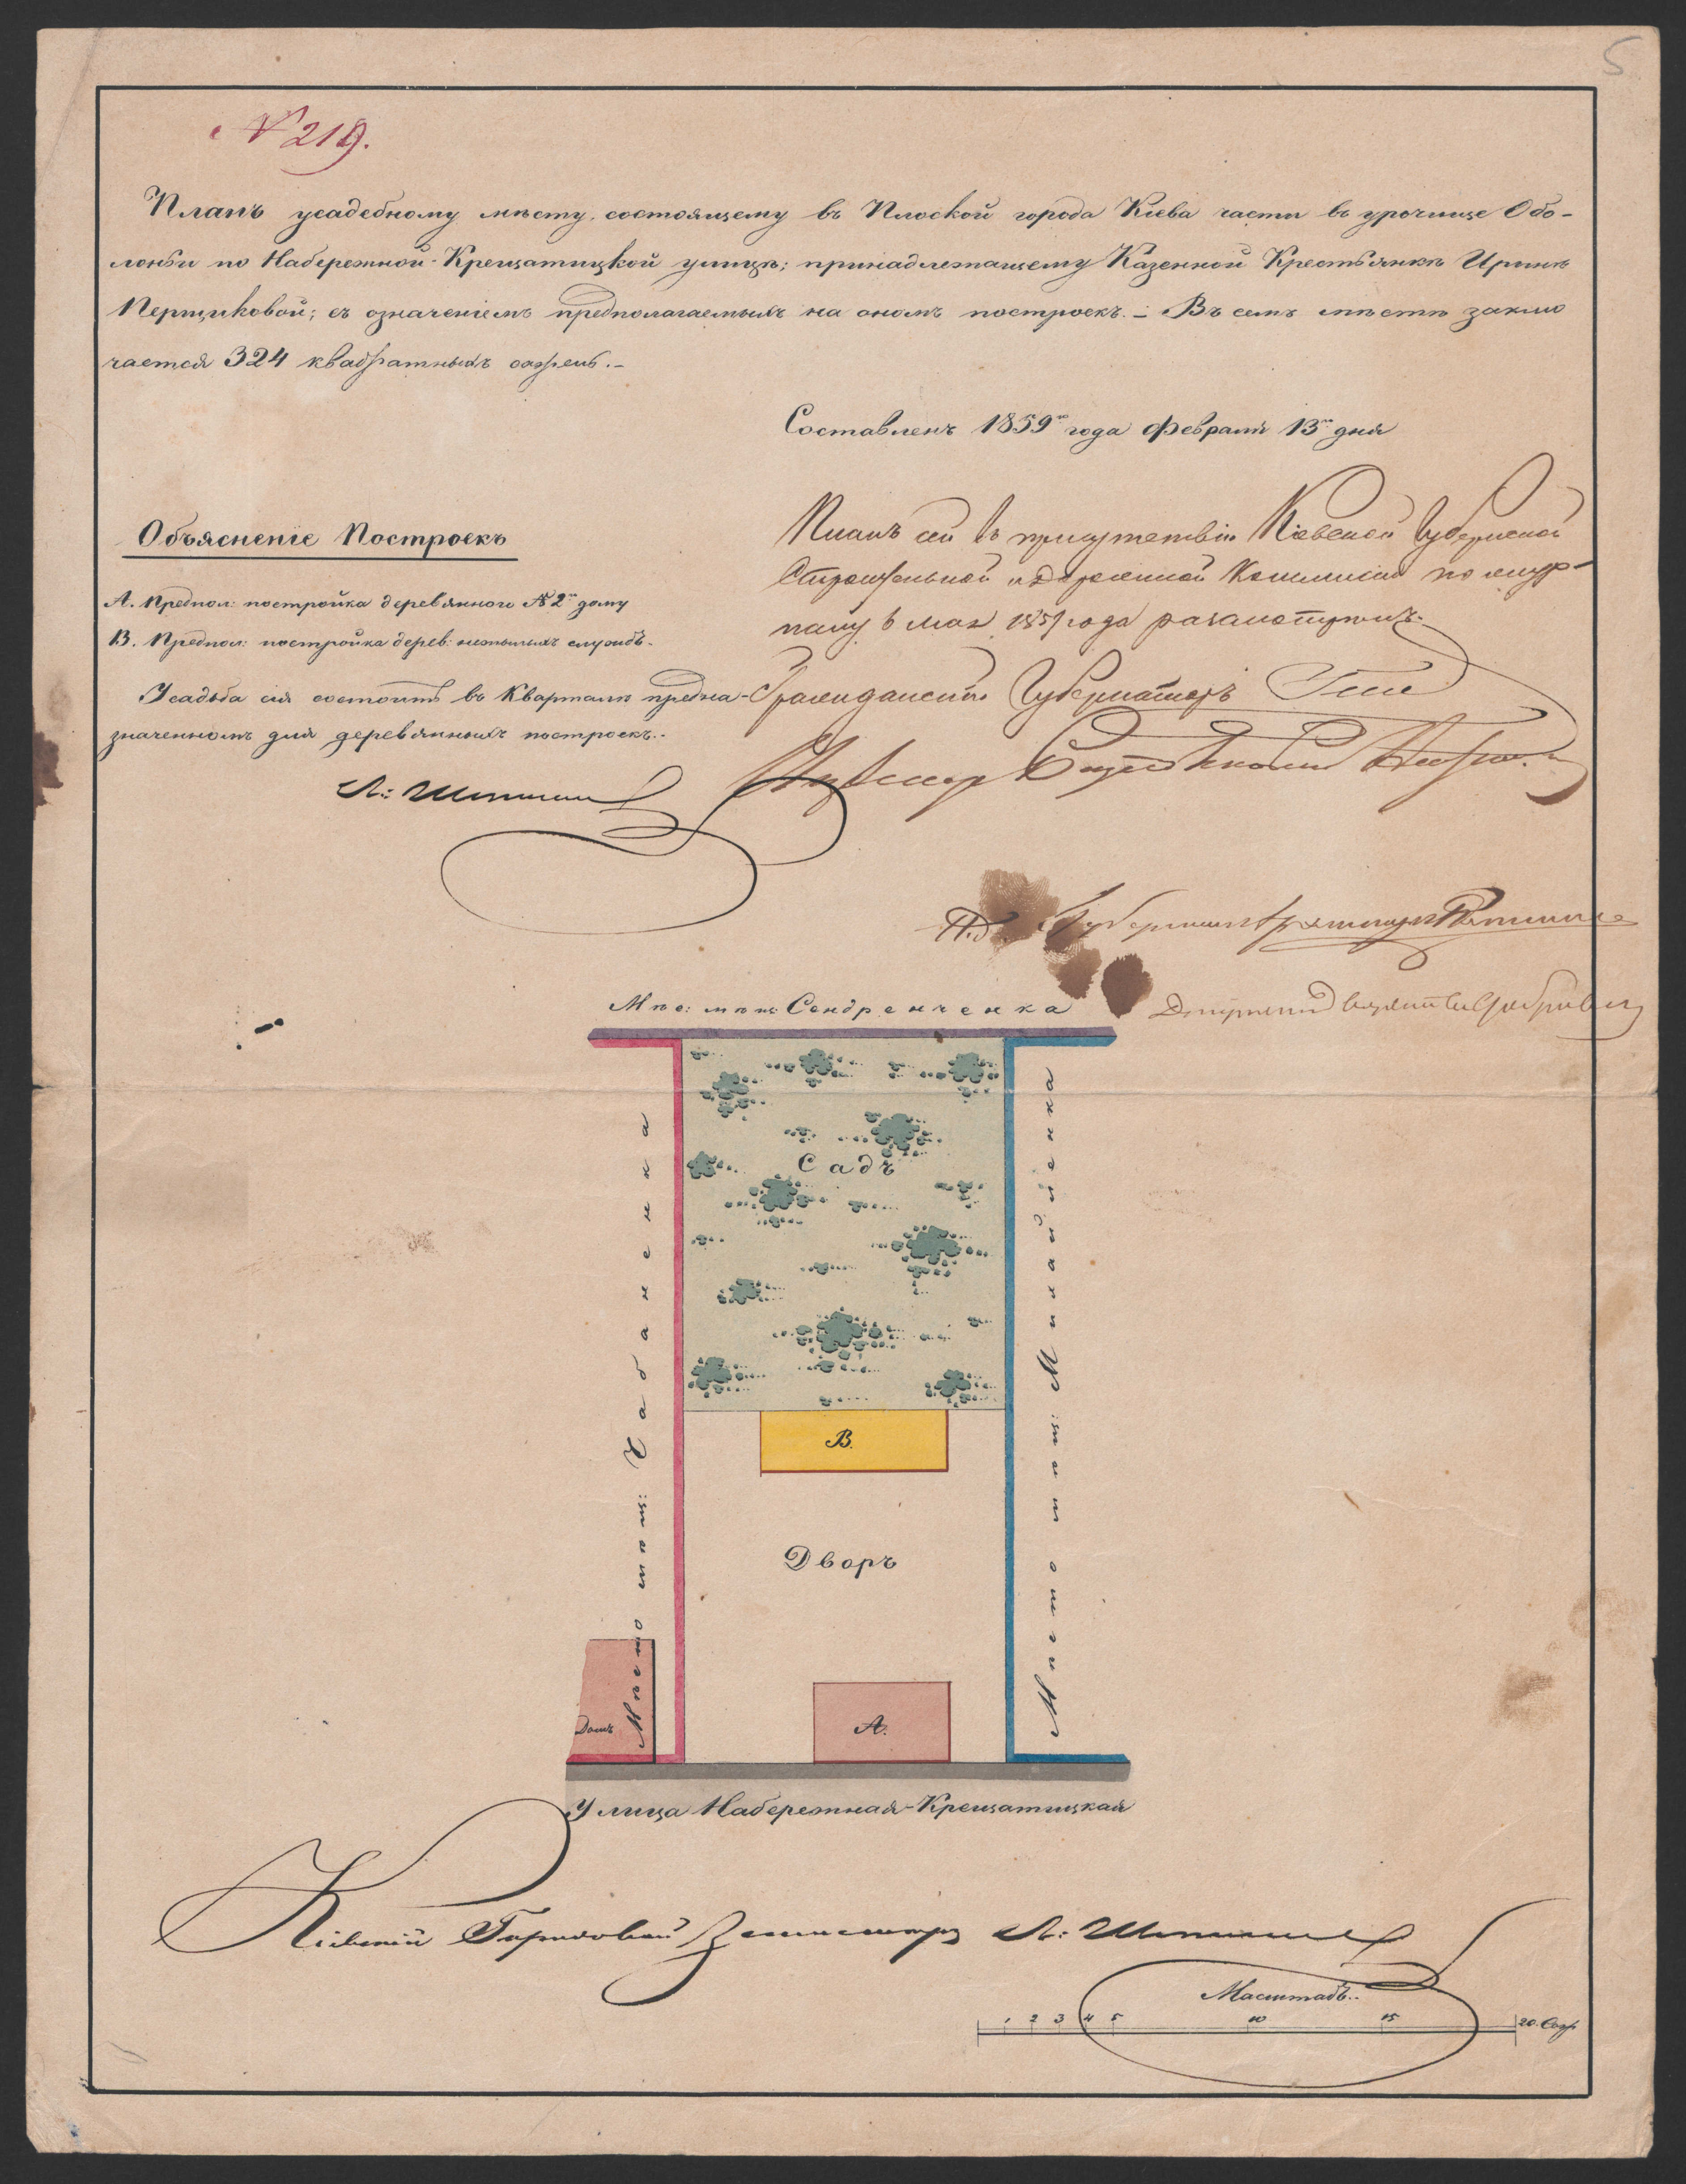 5
№ 219.
Планъ усадебному мѣсту, состоящему въ Плоской города Кіева части въ урочище Обо-
лоньи по Набережной-Крещатицкой улицѣ; принадлежащему Казенной Крестьянкѣ Иринѣ
Перщиковой; съ означеніемъ предполагаемыхъ на ономъ построекъ.- Въ семъ мѣстѣ заклю
чается 324 квадратныхъ сажень.-
Составленъ 1859го года февраля 13го дня
Объясненіе Построекъ
А. Предпол: постройка деревяннаго № 2го дому
В. Предпол: постройка дерев: нежилыхъ службъ.
Усадьба сія состоитъ въ Кварталѣ предна-
значенномъ для деревянныхъ построекъ.-
Планъ сей въ присутствіи Кіевской Губернской
Строительной и Дорожной Коммисіи по жур-
налу 6 мая 1859 года разсмотренъ.
Гражданскій Губернаторъ Гессе
Мѣс: мѣщ: Сендренченка
Мѣсто мѣщ: Чабаненка
Мѣсто мѣщ: Михайленка
Садъ
В.
Дворъ
Домъ
А.
Улица Набережная-Крещатицкая
Кіевскій Городовой Землемѣръ
Масштабъ.
1 2 3 4 5 10 15 20. Саж